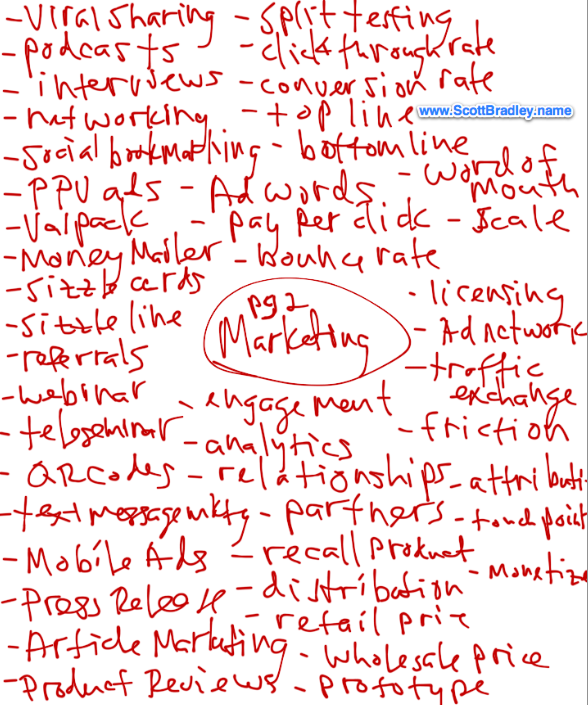 - Viral Sharing - Split testing
- podcasts - click through rate
- interviews - conversion rate
- networking - top line www.ScottBradley.name
- Social bookmarking - bottom line
- word of mouth
- PPV ads - Adwords
- Valpack - pay per click - Scale
- Money Mailer - bounce rate
- Sizzle cards
- licensing
pg 2
Marketing
- Sizzle line
- Ad network
- referrals
- traffic exchange
- webinar - engagement
- friction
- teleseminar - analytics
- QR Codes - relationships - attributi
- text message mktg - partners - touch point
- Mobile Ads - recall product
- Monetize
- Press Release - distribution
- retail price
- Article Marketing - Wholesale price
- Product Reviews - prototype